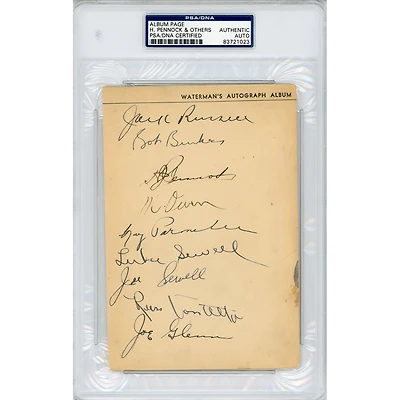 PSA/DNA
ALBUM PAGE
H. PENNOCK & OTHERS
PSA/DNA CERTIFIED
AUTHENTIC
AUTO
83721023
WATERMAN'S AUTOGRAPH ALBUM
Jack Russell
Bob
H Pennock
Roy Parmelee
Luke Sewell
Joe Sewell
Russ Van Atta
Joe Glenn